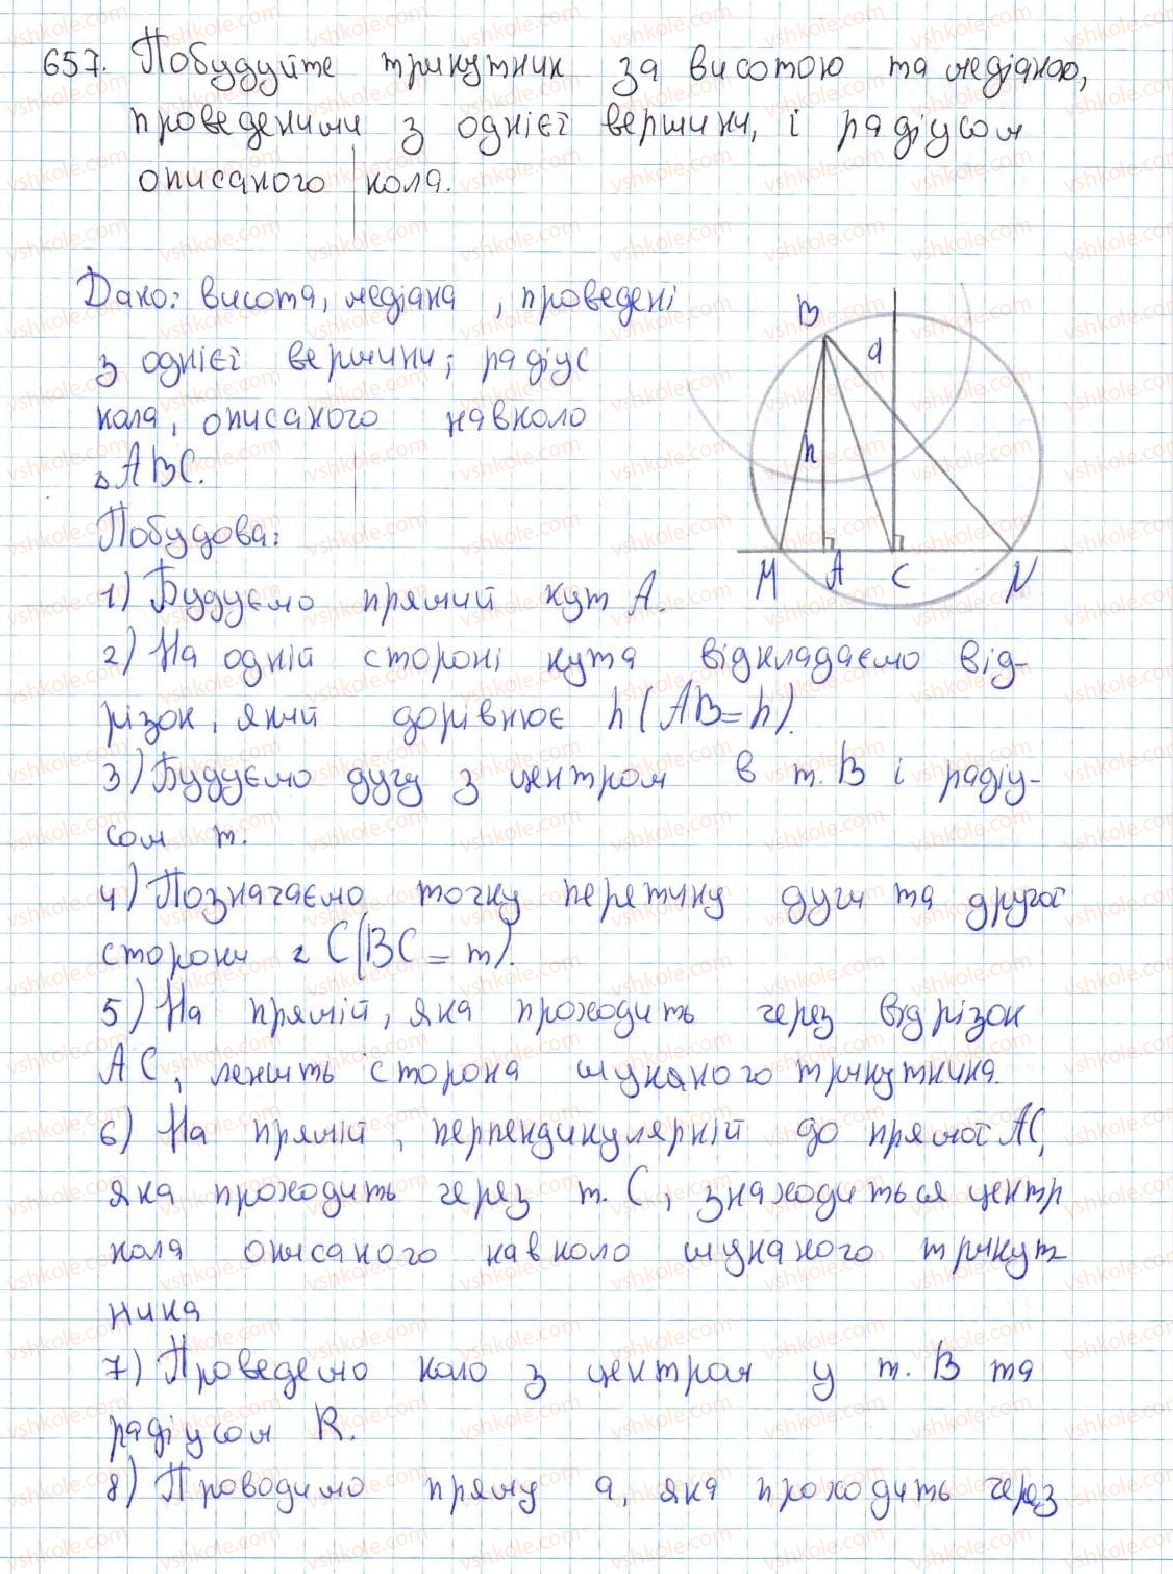 657. Побудуйте трикутник за висотою та медіаною,
проведеними з однієї вершини, і радіусом
описаного кола.
Дано: висота, медіана, проведені
з однієї вершини; радіус
кола, описаного навколо
△ABC.
Побудова:
1) Будуємо прямий кут A.
2) На одній стороні кута відкладаємо від-
різок, який дорівнює h (AB = h).
3) Будуємо дугу з центром в т. B і радіу-
сом m.
4) Позначаємо точку перетину дуги та другої
сторони C (BC = m).
5) На прямій, яка проходить через відрізок
AC, лежить сторона шуканого трикутника.
6) На прямій, перпендикулярній до прямої AC,
яка проходить через т. C, знаходиться центр
кола описаного навколо шуканого трикут-
ника
7) Проведемо коло з центром у т. B та
радіусом R.
8) Проводимо пряму a, яка проходить через
B
a
h
M
A
C
N
vshkole.com